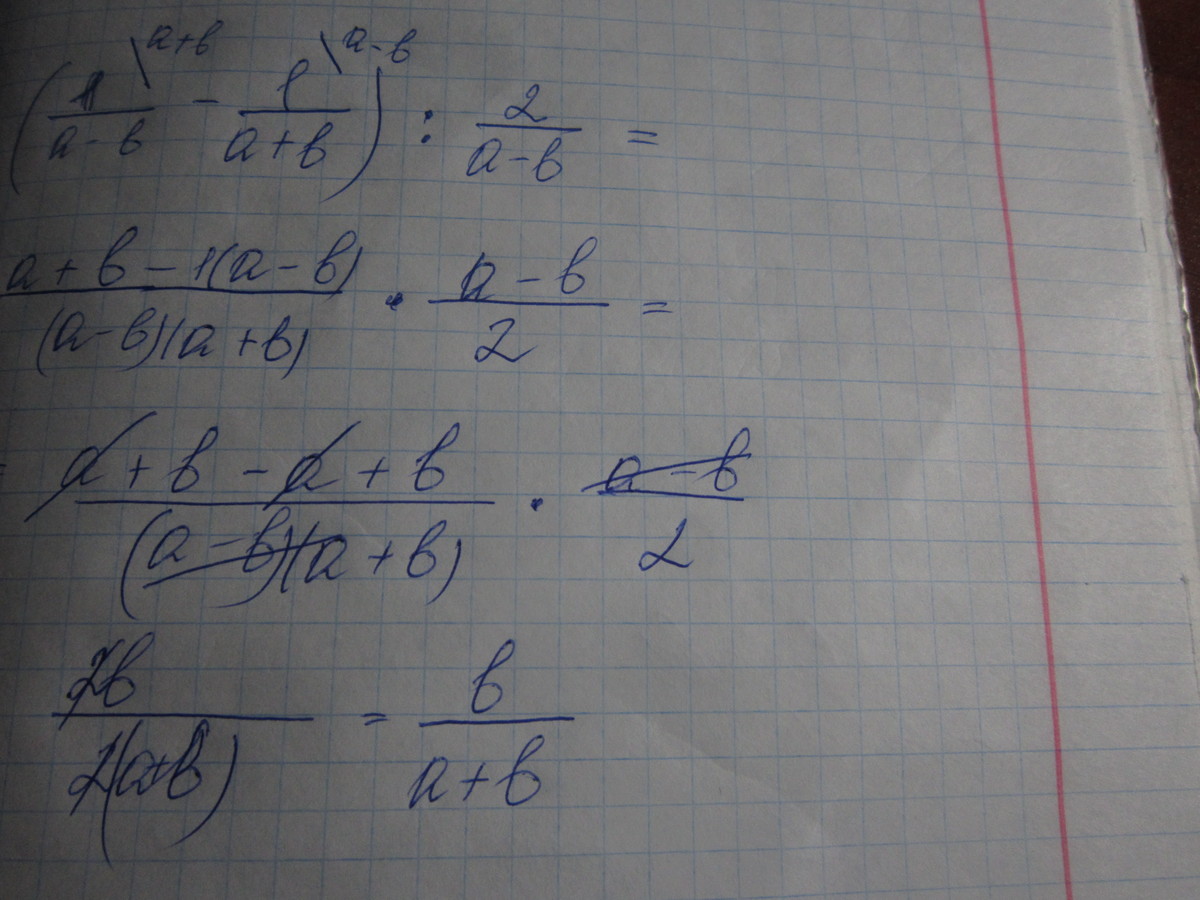 (1/(a-b) \a+b - 1/(a+b) \a-b) : 2/(a-b) =
(a+b-1(a-b))/((a-b)(a+b)) · (a-b)/2 =
= (a+b-a+b)/((a-b)(a+b)) · (a-b)/2
2b/(2(a+b)) = b/(a+b)